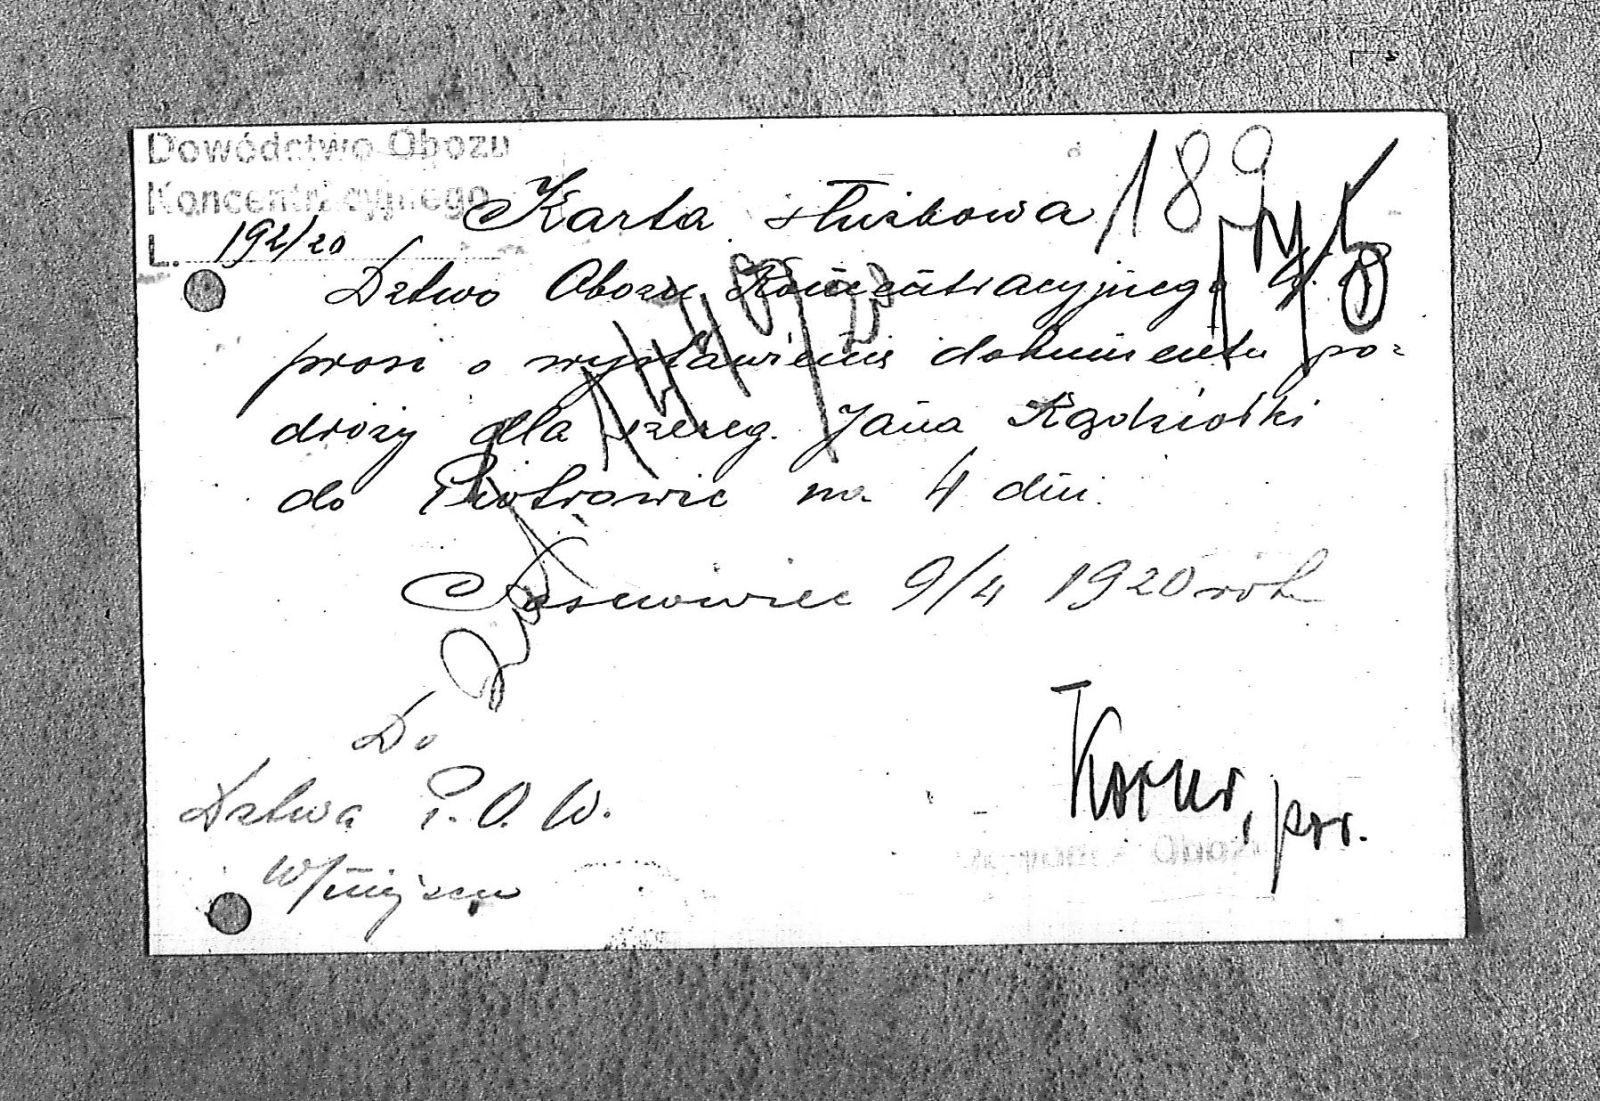 Dowództwo Obozu
Koncentracyjnego
L. 192/20
Karta służbowa
189
Dztwo Obozu Koncentracyjnego G. Ś.
prosi o wystawienie dokumentu po-
dróży dla szereg. Jana Kądziołki
do Piotrowic na 4 dni.
Sosnowiec 9/4 1920 rok
Do
Dztwa P. O. W.
W/miejscu
por.
Obozu